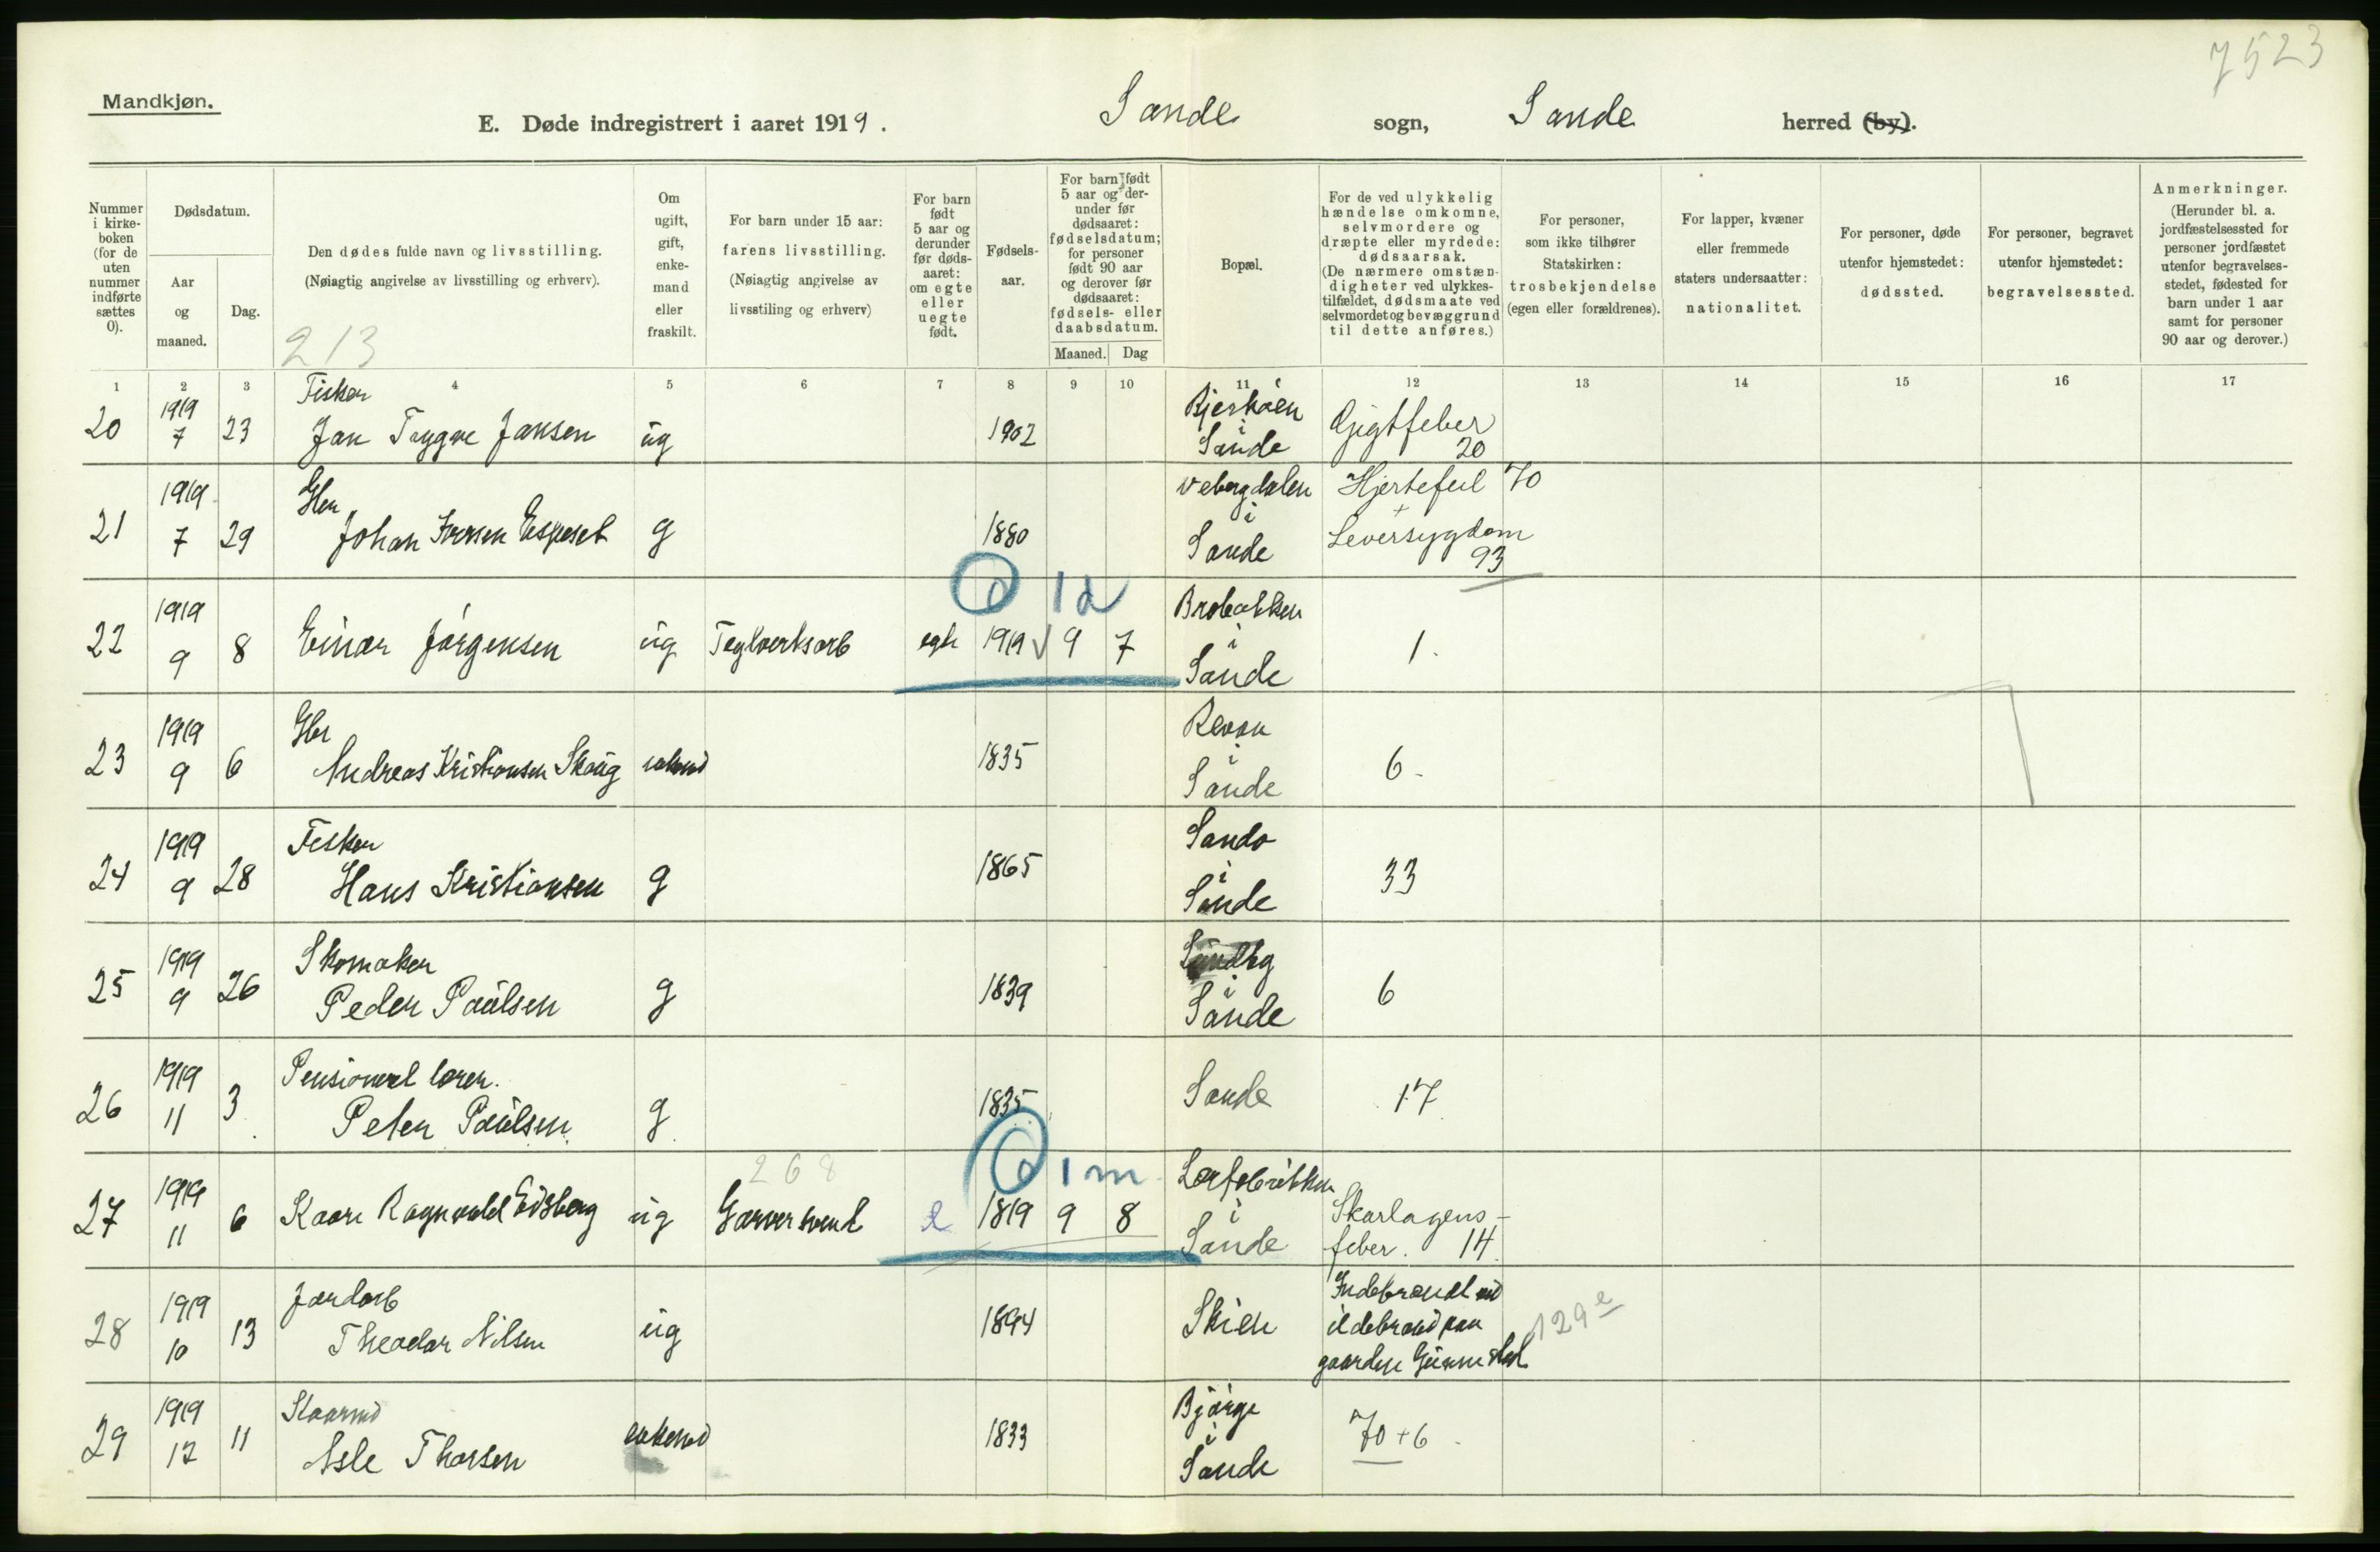 7523
Mandkjøn.
E. Døde indregistrert i aaret 1919. Sande sogn, Sande herred (by).
Nummer i kirkeboken (for de uten nummer indførte sættes 0).
Dødsdatum.
Aar og maaned.
Dag.
Den dødes fulde navn og livsstilling.
(Nøiagtig angivelse av livsstilling og erhverv).
213
Om ugift, gift, enkemand eller fraskilt.
For barn under 15 aar: farens livsstilling.
(Nøiagtig angivelse av livsstiling og erhverv)
For barn født 5 aar og derunder før dødsaaret: om egte eller uegte født.
Fødselsaar.
For barn født 5 aar og derunder før dødsaaret: fødselsdatum; for personer født 90 aar og derover før dødsaaret: fødsels- eller daabsdatum.
Maaned. Dag
Bopæl.
For de ved ulykkelig hændelse omkomne, selvmordere og dræpte eller myrdede: dødsaarsak.
(De nærmere omstændigheter ved ulykkestilfældet, dødsmaate ved selvmordet og bevæggrund til dette anføres.)
For personer, som ikke tilhører Statskirken: trosbekjendelse (egen eller forældrenes).
For lapper, kvæner eller fremmede staters undersaatter: nationalitet.
For personer, døde utenfor hjemstedet: dødssted.
For personer, begravet utenfor hjemstedet: begravelsessted.
Anmerkninger.
(Herunder bl. a. jordfæstelsessted for personer jordfæstet utenfor begravelsesstedet, fødested for barn under 1 aar samt for personer 90 aar og derover.)
1 2 3 4 5 6 7 8 9 10 11 12 13 14 15 16 17
20 1919 7 23 Fisker Jan Trygve Jansen ug 1902 i Sande Gigtfeber 20
21 1919 7 29 Gbr Johan Espeset g 1880 i Sande Hjertefeil 70 + Leversygdom 93
1d
22 1919 9 8 Einar Jörgensen ug Teglverksarb egte 1919 9 7 Brobakken i Sande 1.
23 1919 9 6 Gbr Andreas Kristiansen Skaug 1835 Revaa i Sande 6
24 1919 9 28 Fisker Hans Kristiansen g 1865 Sando i Sande 33
25 1919 9 26 Skomaker Peder Paulsen g 1839 i Sande 6
26 1919 11 3 Pensionert lærer. Peter Paulsen g 1835 Sande 17
268
1m
27 1919 11 6 Kaare Ragnvald Edsberg ug Garversvend e 1819 9 8 Lærfabrikken i Sande Skarlagensfeber. 14.
28 1919 10 13 Jordarb Theodor Nilsen ug 1894 Skien Indebrændt ved ildebrand paa gaarden 129e
29 1919 12 11 Asle Thorsen enkemd 1833 Björge i Sande 70+6